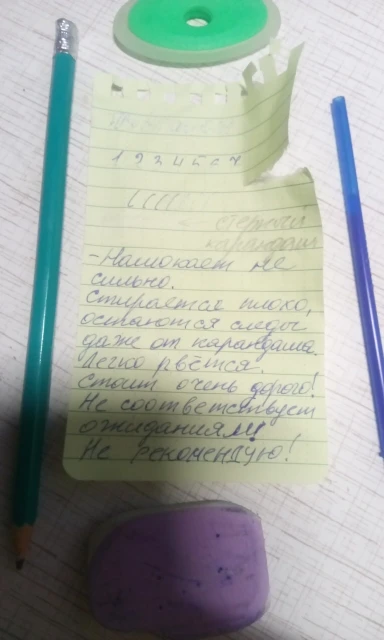 1 2 3 4 5 6 7
стёртый
карандаш
-Намокает не
сильно.
Стирается плохо,
остаются следы
даже от карандаша.
Легко рвётся.
Стоит очень дорого!
Не соответствует
ожиданиям!!
Не рекомендую!